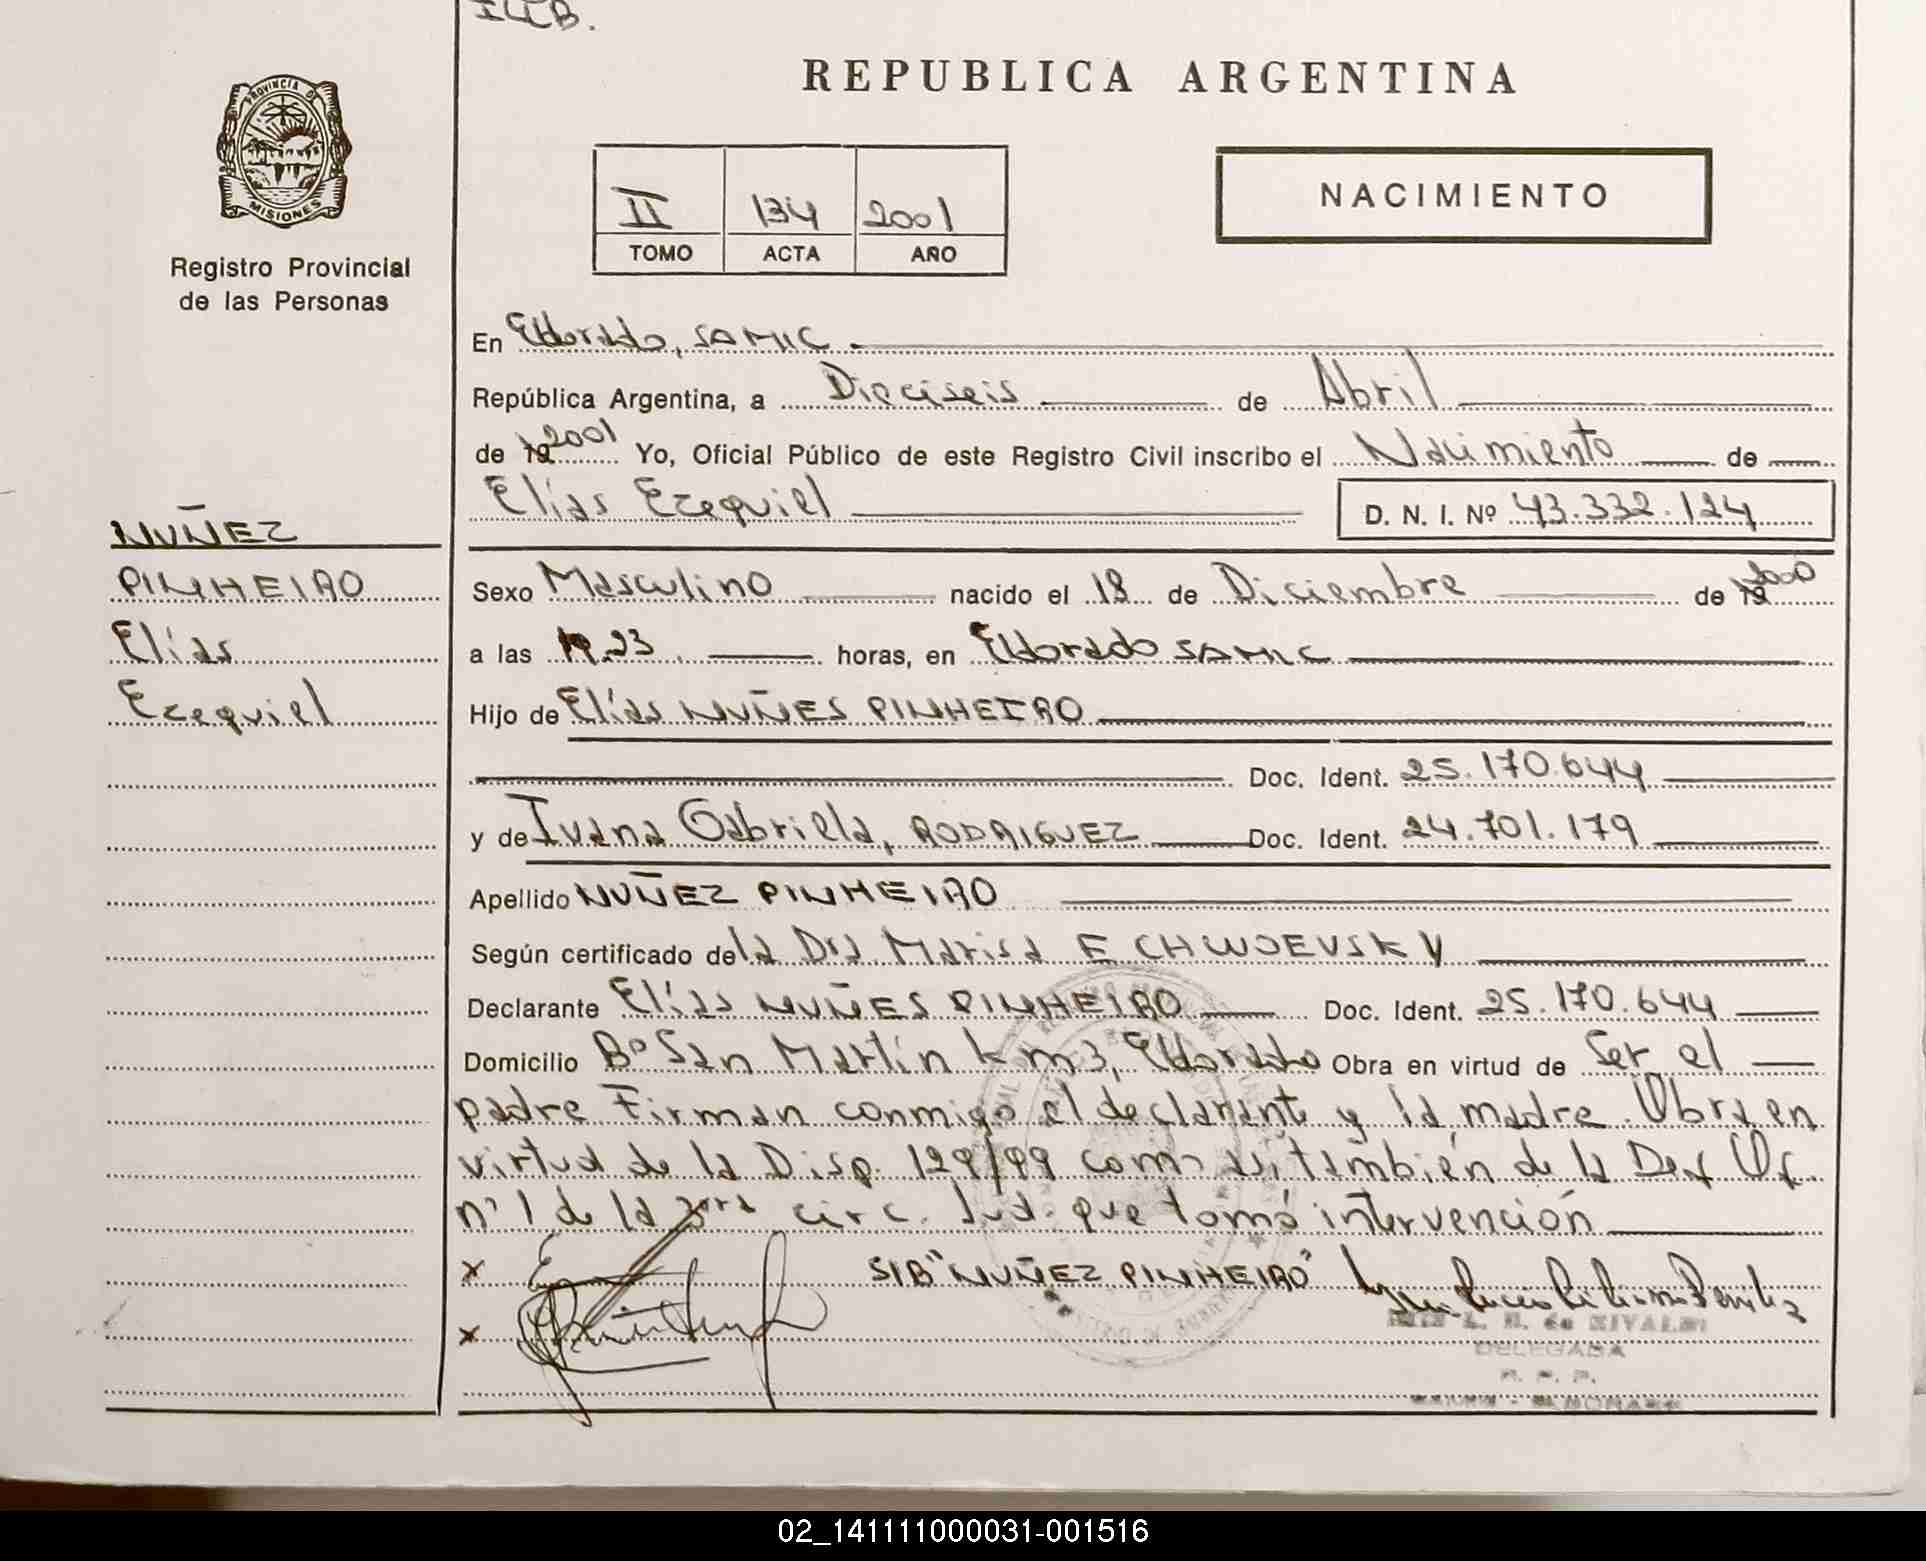 REPUBLICA ARGENTINA
PROVINCIA D
MISIONES
Registro Provincial
de las Personas
II 134 2001
TOMO ACTA AÑO
NACIMIENTO
En Eldorado, SAMIC
República Argentina, a Dieciseis de Abril
de 19 2001 Yo, Oficial Público de este Registro Civil inscribo el Nacimiento de
Elías Ezequiel D. N. I. Nº 43.332.124
NUÑEZ
PINHEIRO
Elías
Ezequiel
Sexo Masculino nacido el 18 de Diciembre de 19 2000
a las 19.23 horas, en Eldorado SAMIC
Hijo de Elías NUÑES PINHEIRO
Doc. Ident. 25.170.644
y de Ivana Gabriela, RODRIGUEZ Doc. Ident. 24.701.179
Apellido NUÑEZ PINHEIRO
Según certificado de la Dra Marisa E CHWOEVSKY
Declarante Elías NUÑES PINHEIRO Doc. Ident. 25.170.644
Domicilio Bº San Martín km 3, Eldorado Obra en virtud de Ser el
padre Firman conmigo el declarante y la madre. Obra en
virtud de la Disp. 129/99 como así también de la Def Of.
nº 1 de la 3ra circ. Jud. que tomó intervención
x S/B "NUÑEZ PINHEIRO"
x
DELEGADA
02_141111000031-001516